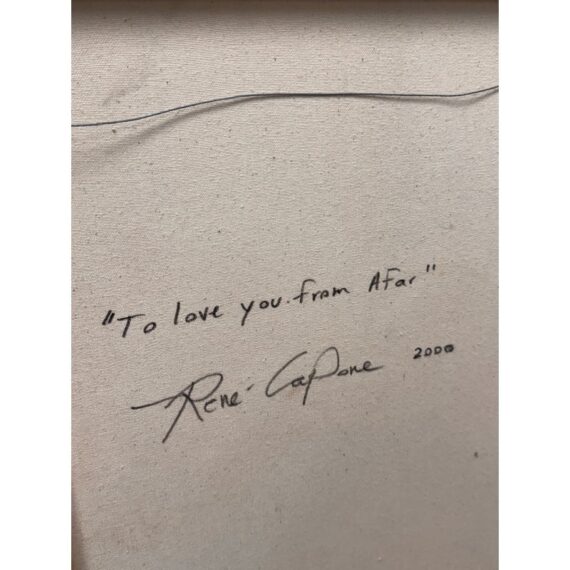 "To love you from Afar"
René Capone 2000